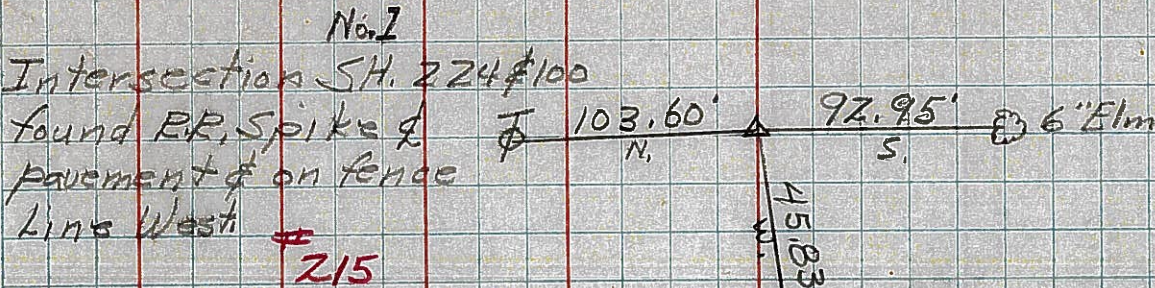 No. 1
Intersection SH. 224 & 100
found R.R. Spike ℄
pavement & on fence
Line West
# 215
T 103.60' 92.95' 6" Elm
N. S.
W. 45.83